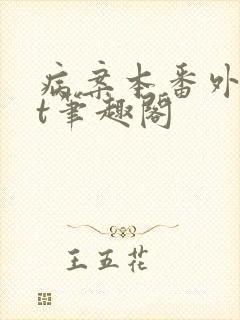 病案本番外
t笔趣阁
王五花